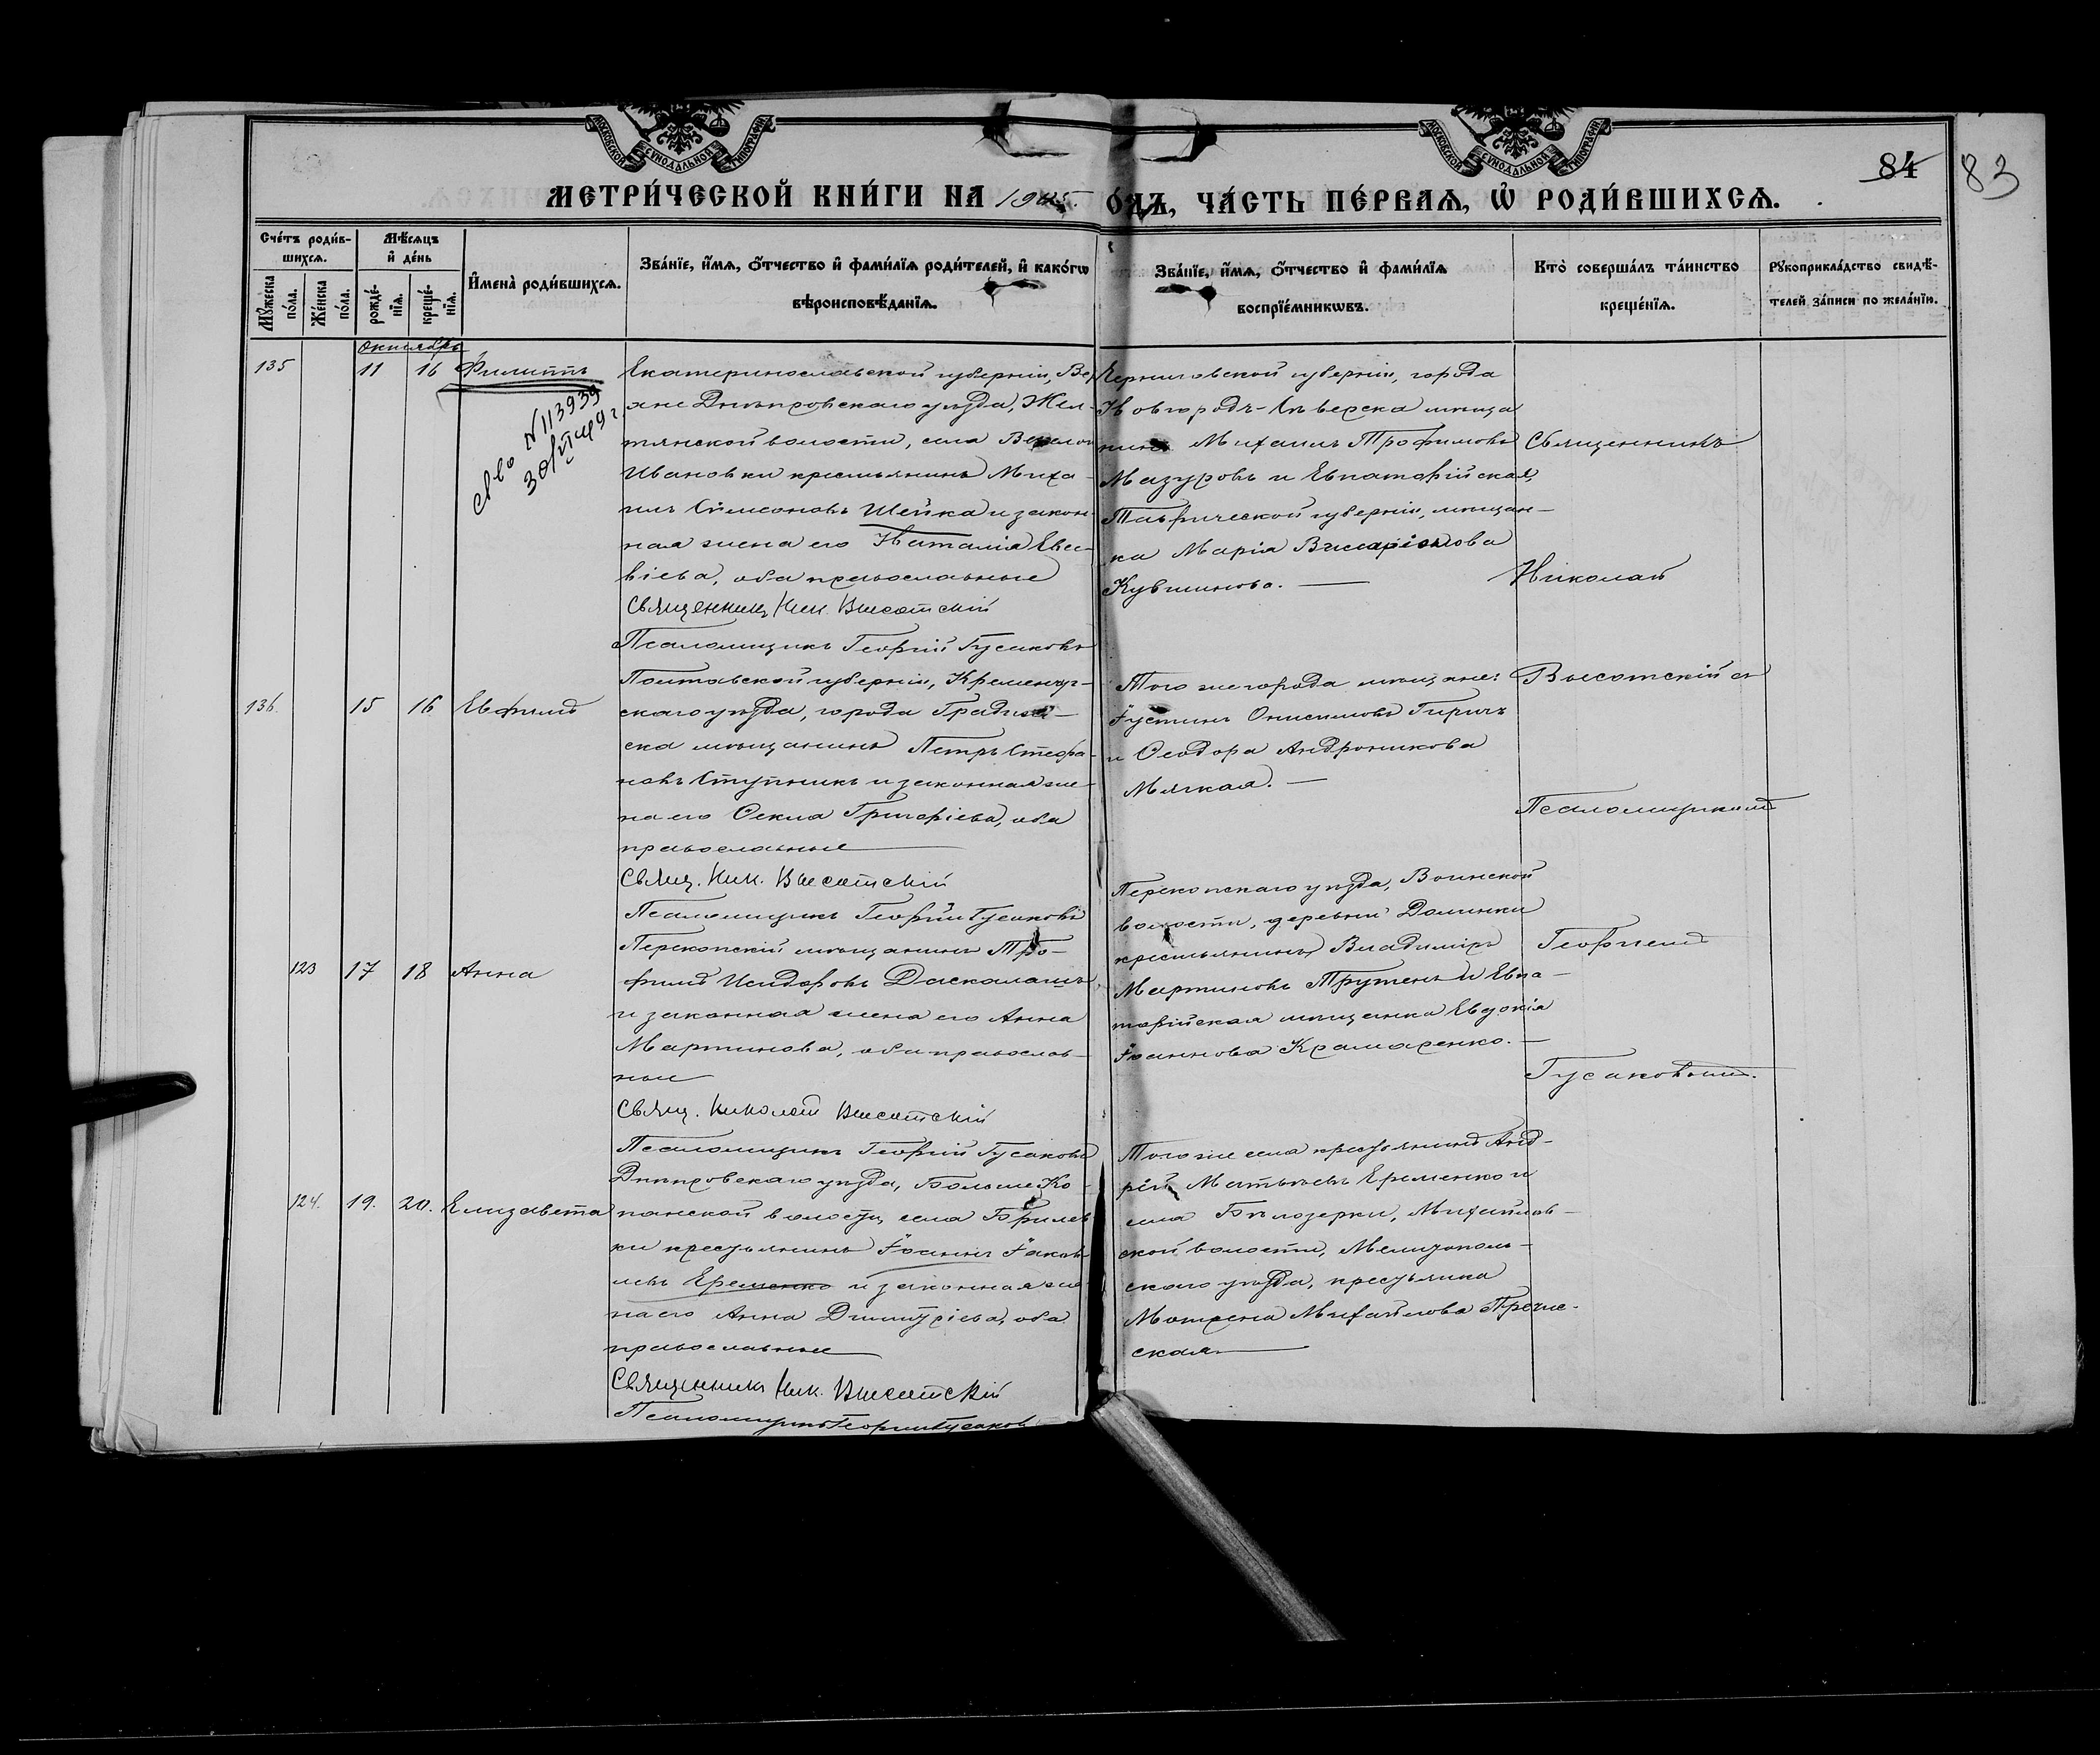 МОСКОВСКОЙ СѴНОДАЛЬНОЙ ТИПОГРАФІИ
МОСКОВСКОЙ СѴНОДАЛЬНОЙ ТИПОГРАФІИ
84 83
МЕТРИ́ЧЕСКОЙ КНИ́ГИ НА 1905 ОДЪ, ЧА́СТЬ ПЕ́РВАѦ, Ѡ҆ РОДИ́ВШИХСѦ.
Сче́тъ роди́в-
шихсѧ.
Мꙋ́жеска по́ла.
Же́нска по́ла.
Мѣ́сѧцъ
и҆ де́нь
рожде́-
нїѧ.
креще́-
нїѧ.
И҆мена̀ роди́вшихсѧ.
Зва́нїе, и҆́мѧ, ѻ҆́тчество и҆ фами́лїѧ роди́телей, и҆ како́гѡ
вѣроисповѣ́данїѧ.
Зва́нїе, и҆́мѧ, ѻ҆́тчество и҆ фами́лїѧ
воспрїе́мникѡвъ.
Кто̀ соверша́лъ та́инство
креще́нїѧ.
Рꙋкоприкла́дство свидѣ́-
телей за́писи по жела́нїю.
Октябрь
135 11 16 Филиппъ
№ 113939
Екатеринославской губерніи, Вер
хне Днѣпровскаго уѣзда, Жел-
тянской волости, села
Ивановки крестьянинъ Миха-
илъ Сѵмеоновъ Шейка и закон-
ная жена его Наталія Евсе-
віева, оба православные
Священникъ Ник. Высотскій
Псаломщикъ Георгій Гусаковъ
Черниговской губерніи, города
Новгородъ-Сѣверска мѣща
нинъ Михаилъ Трофимовъ
Мазуровъ и Евпаторійская,
Таврической губерніи, мѣщан-
ка Марія Виссаріонова
Кувшинова.
Священникъ
Николай
Высотскій съ
Псаломщикомъ
Георгіемъ
Гусаковымъ.
136. 15 16 Евфимій
Полтавской губерніи, Кременчуг-
скаго уѣзда, города Градиж-
ска мѣщанинъ Петръ Стефа-
новъ Ступникъ и законная же-
на его Ѳекла Григоріева, оба
православные
Свящ. Ник. Высотскій
Псаломщикъ Георгій Гусаковъ
Того же города мѣщане:
Іустинъ Онисимовъ Гиричъ
и Ѳеодора Андроникова
Мягкая.
123 17 18 Анна
Перекопскій мѣщанинъ Тро-
фимъ Исидоровъ Даскалашъ
и законная жена его Анна
Мартинова, оба православ-
ные
Свящ. Николай Высотскій
Псаломщикъ Георгій Гусаковъ
Перекопскаго уѣзда, Воинской
волости, деревни Долинки
крестьянинъ Владиміръ
Мартиновъ Трутень и Евпа-
торійская мѣщанка Евдокія
Іоаннова Крамаренко.
124. 19. 20. Елизавета
Днѣпровскаго уѣзда, Больше Ко-
панской волости, села Брилев
ки крестьянинъ Іоаннъ Іаков
левъ Еременко и законная же
на его Анна Димитріева, оба
православные
Священникъ Ник. Высотскій
Псаломщикъ Георгій Гусаковъ
Того же села крестьянинъ Анд-
рей Матвѣевъ Еременко и
села Бѣлозерки, Михайлов-
ской волости, Мелитополь-
скаго уѣзда, крестьянка
Мотрена Михайлова
ская